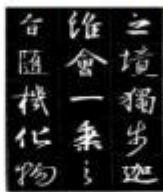 之境獨步迦
維會一乘之
旨匯機化物